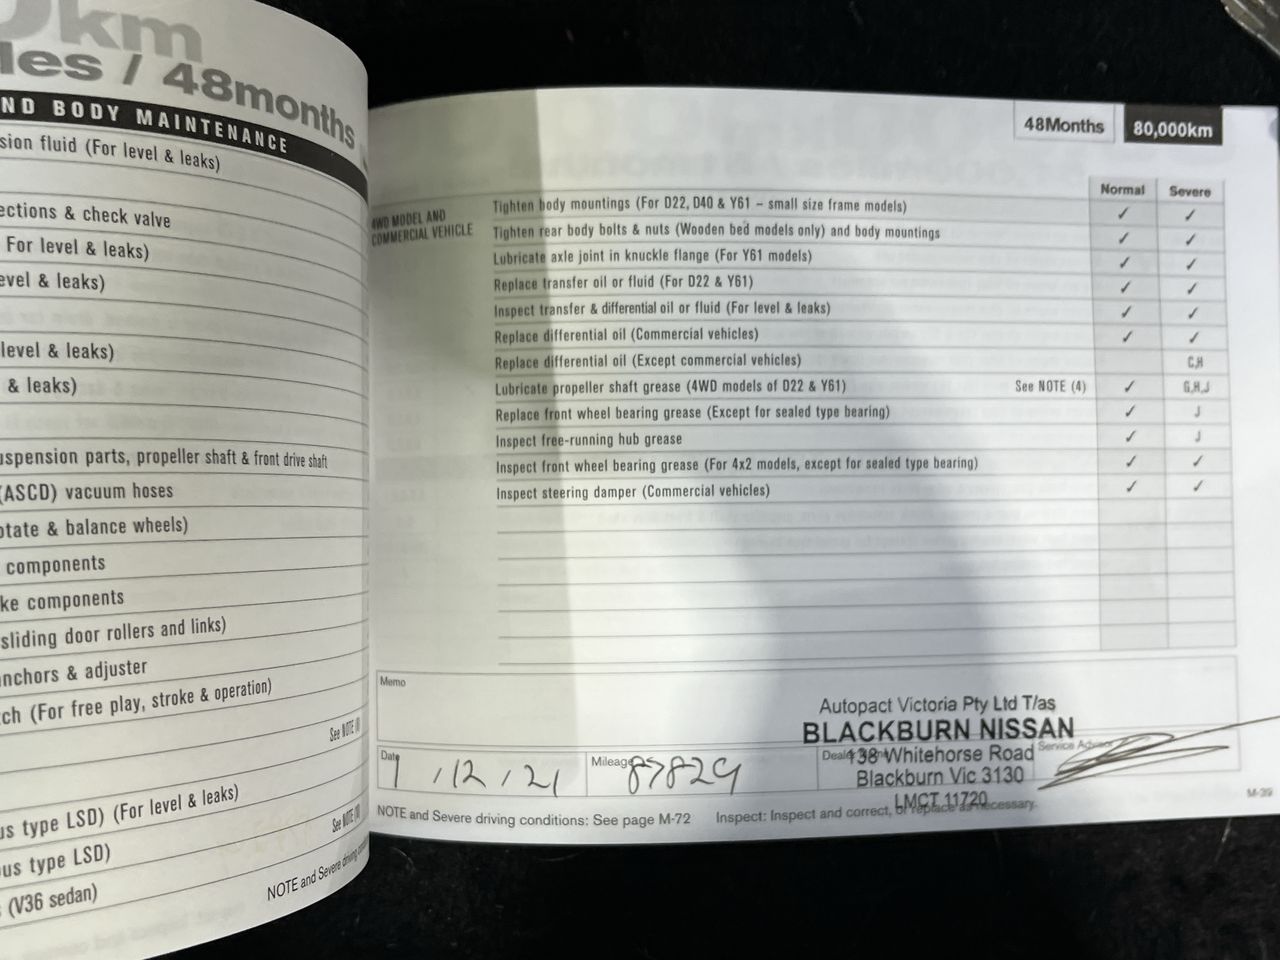 km
les / 48months
ND BODY MAINTENANCE
sion fluid (For level & leaks)
ections & check valve
For level & leaks)
evel & leaks)
level & leaks)
& leaks)
uspension parts, propeller shaft & front drive shaft
(ASCD) vacuum hoses
otate & balance wheels)
components
ke components
sliding door rollers and links)
nchors & adjuster
ch (For free play, stroke & operation)
See NOTE
us type LSD) (For level & leaks)
See NOTE
ous type LSD)
(V36 sedan)
NOTE and Severe driving
48Months 80,000km
Normal Severe
4WD MODEL AND
COMMERCIAL VEHICLE
Tighten body mountings (For D22, D40 & Y61 – small size frame models) ✓ ✓
Tighten rear body bolts & nuts (Wooden bed models only) and body mountings ✓ ✓
Lubricate axle joint in knuckle flange (For Y61 models) ✓ ✓
Replace transfer oil or fluid (For D22 & Y61) ✓ ✓
Inspect transfer & differential oil or fluid (For level & leaks) ✓ ✓
Replace differential oil (Commercial vehicles) ✓ ✓
Replace differential oil (Except commercial vehicles) C,H
Lubricate propeller shaft grease (4WD models of D22 & Y61) See NOTE (4) ✓ G,H,J
Replace front wheel bearing grease (Except for sealed type bearing) ✓ J
Inspect free-running hub grease ✓ J
Inspect front wheel bearing grease (For 4x2 models, except for sealed type bearing) ✓ ✓
Inspect steering damper (Commercial vehicles) ✓ ✓
Memo
Autopact Victoria Pty Ltd T/as
BLACKBURN NISSAN
138 Whitehorse Road
Blackburn Vic 3130
LMCT 11720
Date 1 / 12 / 21
Mileage 87829
Service Advisor
NOTE and Severe driving conditions: See page M-72 Inspect: Inspect and correct, or replace as necessary.
M-39